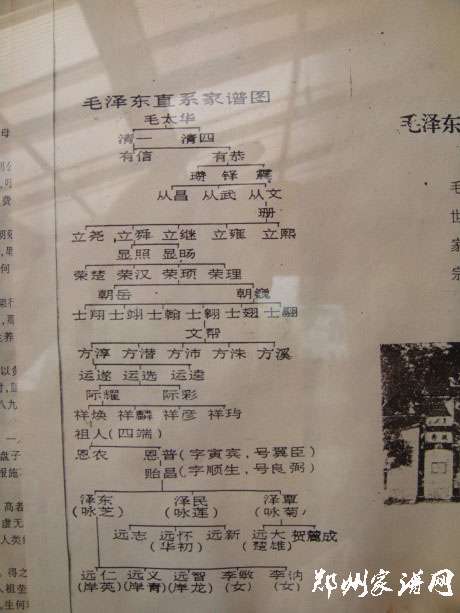 毛泽东直系家谱图
毛太华
清一 清四
有信 有恭
瓒 铎 震
从昌 从武 从文
珊
立尧 立舜 立继 立雍 立熙
显照 显旸
荣楚 荣汉 荣顼 荣理
朝岳 朝巍
士翔 士翊 士翰 士翱 士翅 士翮
文帮
方淳 方潜 方沛 方洙 方溪
运遂 运选 运逵
际耀 际彩
祥焕 祥麟 祥彦 祥玙
祖人(四端)
恩农 恩普(字寅宾,号冀臣)
贻昌(字顺生,号良弼)
泽东 泽民 泽覃
(咏芝) (咏莲) (咏菊)
远志 远怀 远新 远大 贺麓成
(华初) (楚雄)
远仁 远义 远智 李敏 李讷
(岸英) (岸青) (岸龙) (女) (女)
毛泽东
郑州家谱网